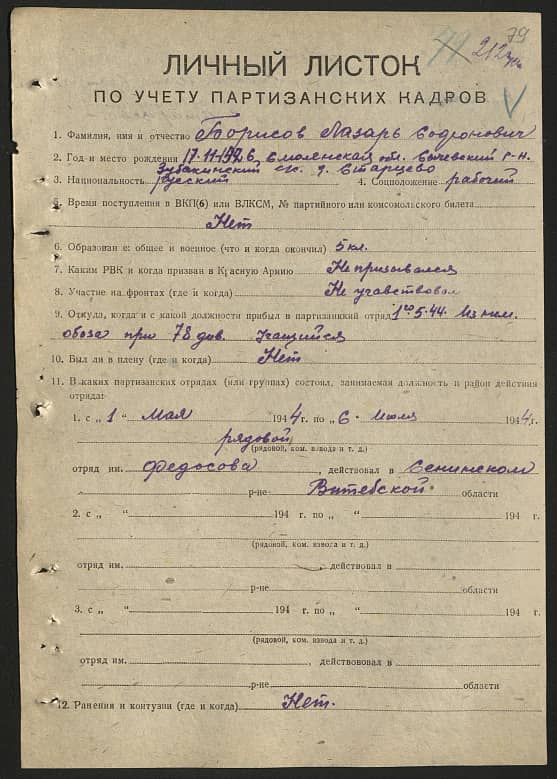 79
49 212
ЛИЧНЫЙ ЛИСТОК
ПО УЧЕТУ ПАРТИЗАНСКИХ КАДРОВ
1. Фамилия, имя и отчество Борисов Лазарь Софронович
2. Год и место рождения 17-11- Смоленская обл. Сычевский р-н.
Зубакинский с/с. д. Старцево
3. Национальность русский 4. Соцположение рабочий
5. Время поступления в ВКП(б) или ВЛКСМ, № партийного или комсомольского билета
Нет
6. Образование: общее и военное (что и когда окончил) 5 кл.
7. Каким РВК и когда призван в Красную Армию Не призывался
8. Участие на фронтах (где и когда) Не учавствовал
9. Откуда, когда и с какой должности прибыл в партизанкий отряд 1го 5.44. Из нем.
обоза при 78 див. Учащийся
10. Был ли в плену (где и когда) Нет
11. В каких партизанских отрядах (или группах) состоял, занимаемая должность и район действия
отряда:
1. с „ 1 “ Мая 1944 г. по „ 6 “ Июля 1944 г.
рядовой
(рядовой, ком. взвода и т. д.)
отряд им. Федосова , действовал в Сенинском
р-не Витебской области
2. с „ “ 194 г. по „ “ 194 г.
(рядовой, ком. взвоса и т. д.)
отряд им. , действовал в
р-не области
3. с „ “ 194 г. по „ “ 194 г.
(рядовой, ком. взвода и т. д.)
отряд им. , действововал в
р-не области
12. Ранения и контузии (где и когда) Нет.